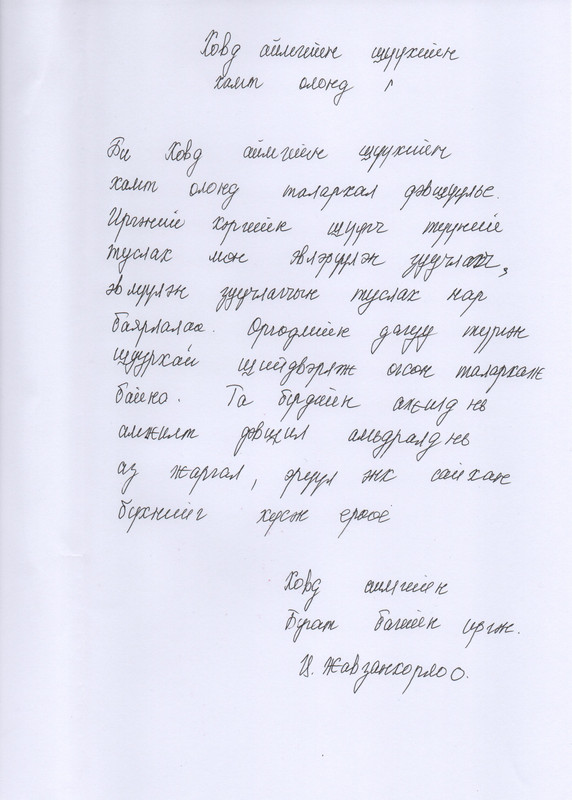 Ховд аймгийн шүүхийн
хамт олонд !
Би Ховд аймгийн шүүхийн
хамт олонд талархал дэвшүүлье.
Иргэний хэргийн шүүгч түүний
туслах мөн эвлэрүүлэн зуучлагч,
эвлүүлэн зуучлагчын туслах нар
баярлалаа. Өргөдлийн дагуу түргэн
шуурхай шийдвэрлэж өгсөн талархаж
байна. Та бүгдийн ажилд нь
амжилт дэвшил амьдралд нь
аз жаргал, эрүүл энх сайхан
бүхнийг хүсэн ерөөе
Ховд аймгийн
Буянт багийн иргэн.
Ц. Жавзанхорлоо.